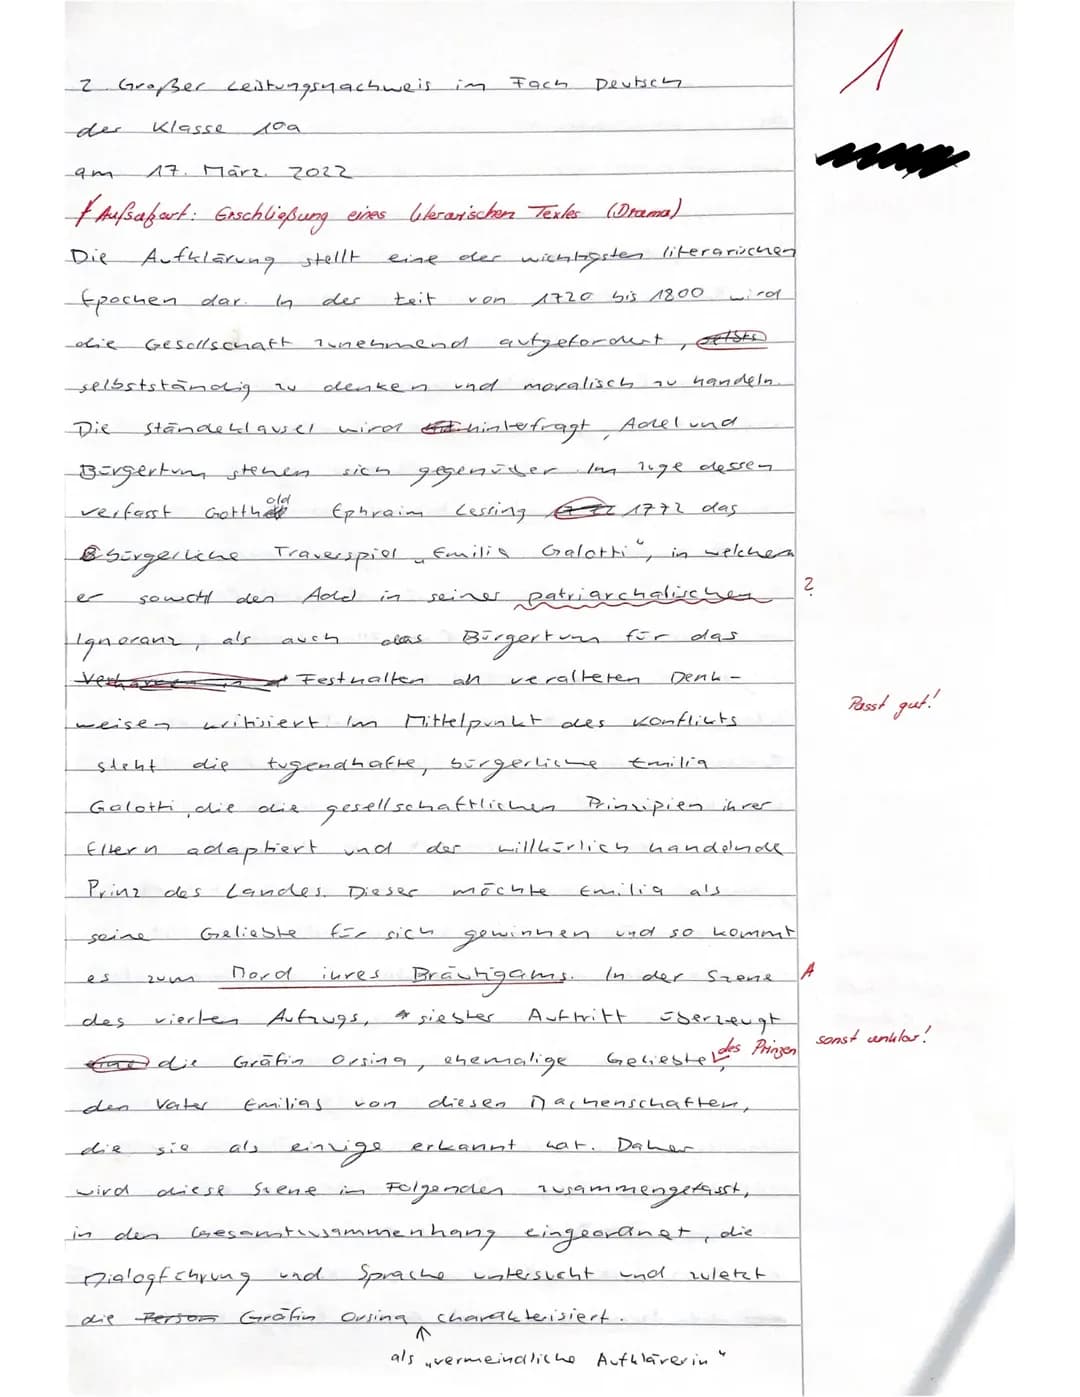 1
2. Großer Leistungsnachweis im Fach Deutsch
der Klasse 10a
am 17. März. 2022
Aufsatzart: Erschließung eines literarischen Textes (Drama)
Die Aufklärung stellt eine der wichtigsten literarischen
Epochen dar. In der Zeit von 1720 bis 1800 wird
die Gesellschaft zunehmend aufgefordert,
selbstständig zu denken und moralisch zu handeln.
Die Ständeklausel wird hinterfragt, Adel und
Bürgertum stehen sich gegenüber. Im Zuge dessen
verfasst Gotthold Ephraim Lessing 1772 das
bürgerliche Trauerspiel „Emilia Galotti“, in welchem
er sowohl den Adel in seiner patriarchalischen ?
Ignoranz, als auch das Bürgertum für das
Festhalten an veralteten Denk-
weisen kritisiert. Im Mittelpunkt des Konflikts Passt gut!
steht die tugendhafte, bürgerliche Emilia
Galotti, die die gesellschaftlichen Prinzipien ihrer
Eltern adaptiert und der willkürlich handelnde
Prinz des Landes. Dieser möchte Emilia als
seine Geliebte für sich gewinnen und so kommt
es zum Mord ihres Bräutigams. In der Szene A
des vierten Aufzugs, siebter Auftritt überzeugt
die Gräfin Orsina, ehemalige Geliebte des Prinzen, sonst unklar!
den Vater Emilias von diesen Machenschaften,
die sie als einzige erkannt hat. Daher
wird diese Szene im Folgenden zusammengefasst,
in den Gesamtzusammenhang eingeordnet, die
Dialogführung und Sprache untersucht und zuletzt
die Gräfin Orsina charakterisiert.
als „vermeindliche Aufklärerin“